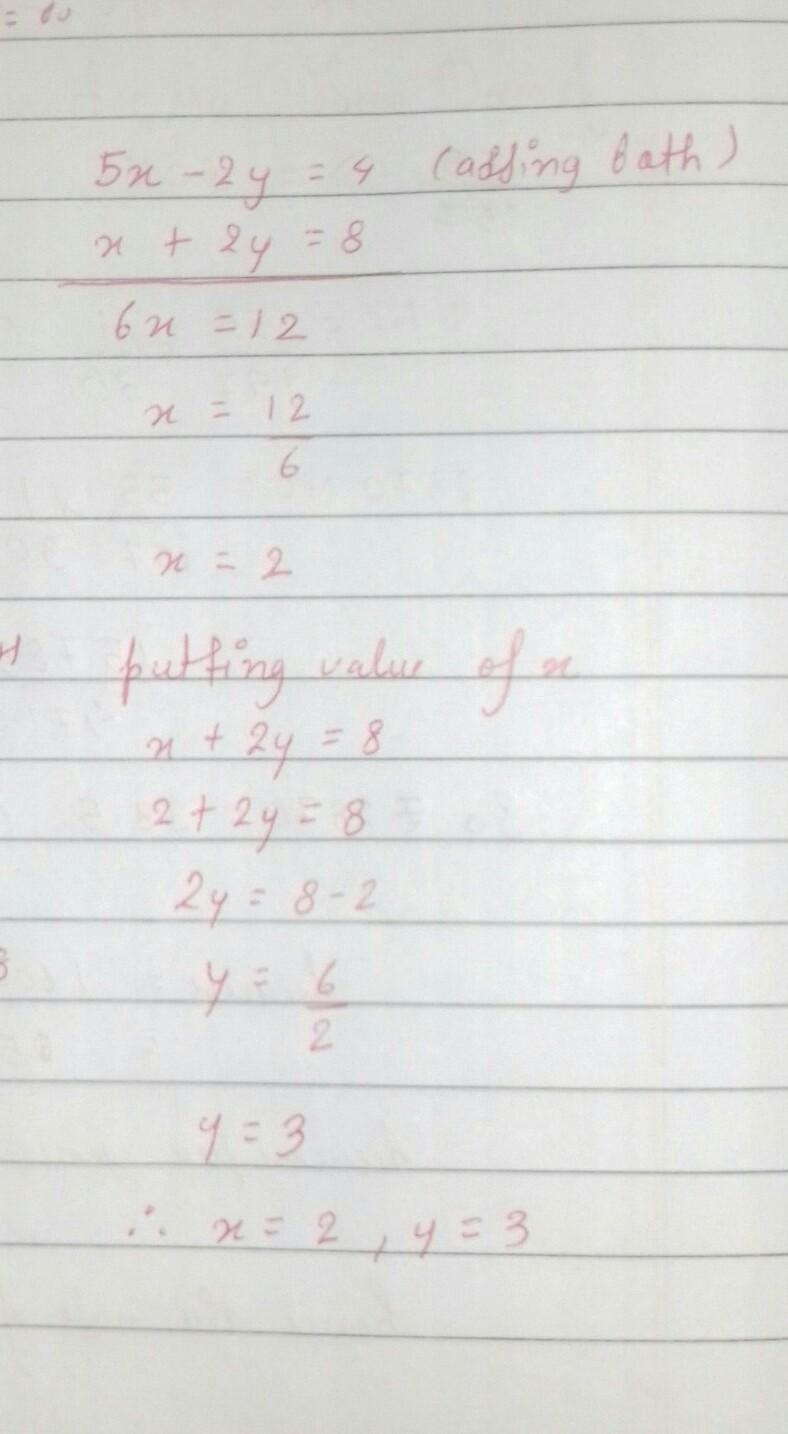 5x - 2y = 4 (adding both)
x + 2y = 8
6x = 12
x = 12
6
x = 2
putting value of x
x + 2y = 8
2 + 2y = 8
2y = 8 - 2
y = 6
2
y = 3
∴ x = 2 , y = 3